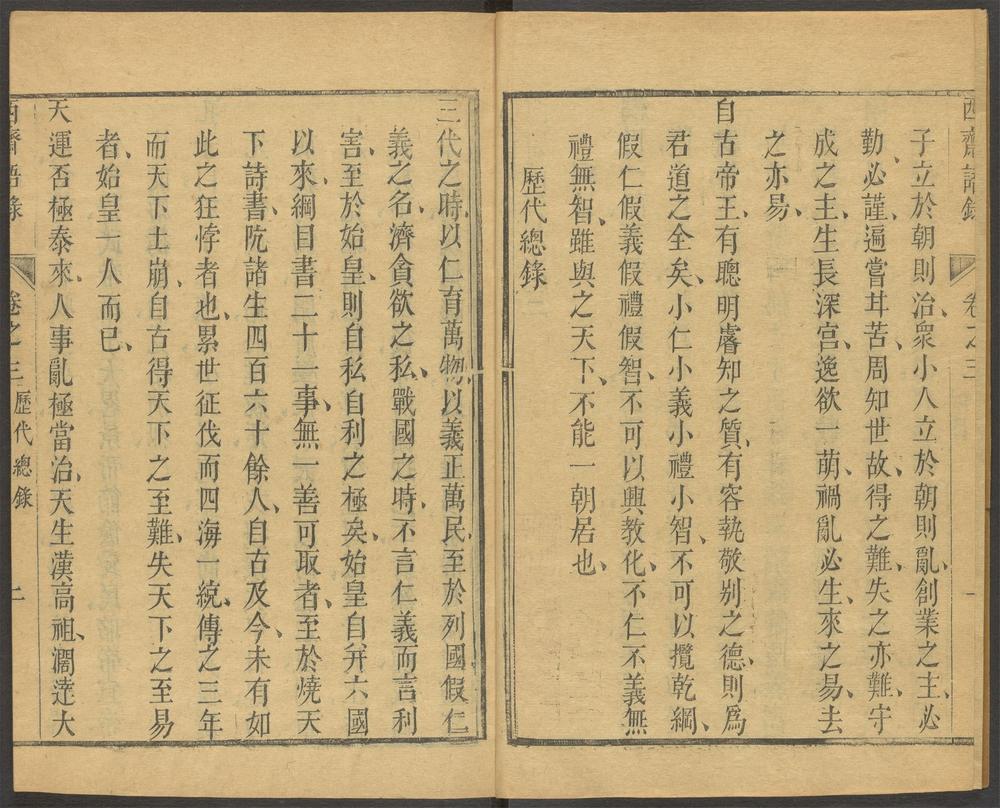 西齋語錄 卷之三 一
子立於朝則治衆小人立於朝則亂、創業之主、必
勤、必謹、遍嘗甘苦、周知世故、得之難、失之亦難、守
成之主、生長深宮、逸欲一萌、禍亂必生、來之易、去
之亦易、
自古帝王、有聰明睿知之質、有容執敬别之德、則爲
君道之全矣、小仁小義小禮小智、不可以攬乾綱、
假仁假義假禮假智、不可以興教化、不仁不義無
禮無智、雖與之天下、不能一朝居也、
歷代總錄
三代之時、以仁育萬物、以義正萬民、至於列國假仁
義之名、濟貪欲之私、戰國之時、不言仁義而言利
害、至於始皇、則自私自利之極矣、始皇自并六國
以來、綱目書二十一事、無一善可取者、至於燒天
下詩書、阬諸生四百六十餘人、自古及今、未有如
此之狂悖者也、累世征伐而四海一統、傳之三年
而天下土崩、自古得天下之至難、失天下之至易
者、始皇一人而已、
天運否極泰來、人事亂極當治、天生漢高祖、濶達大
西齋語錄 卷之三 歷代總錄 二